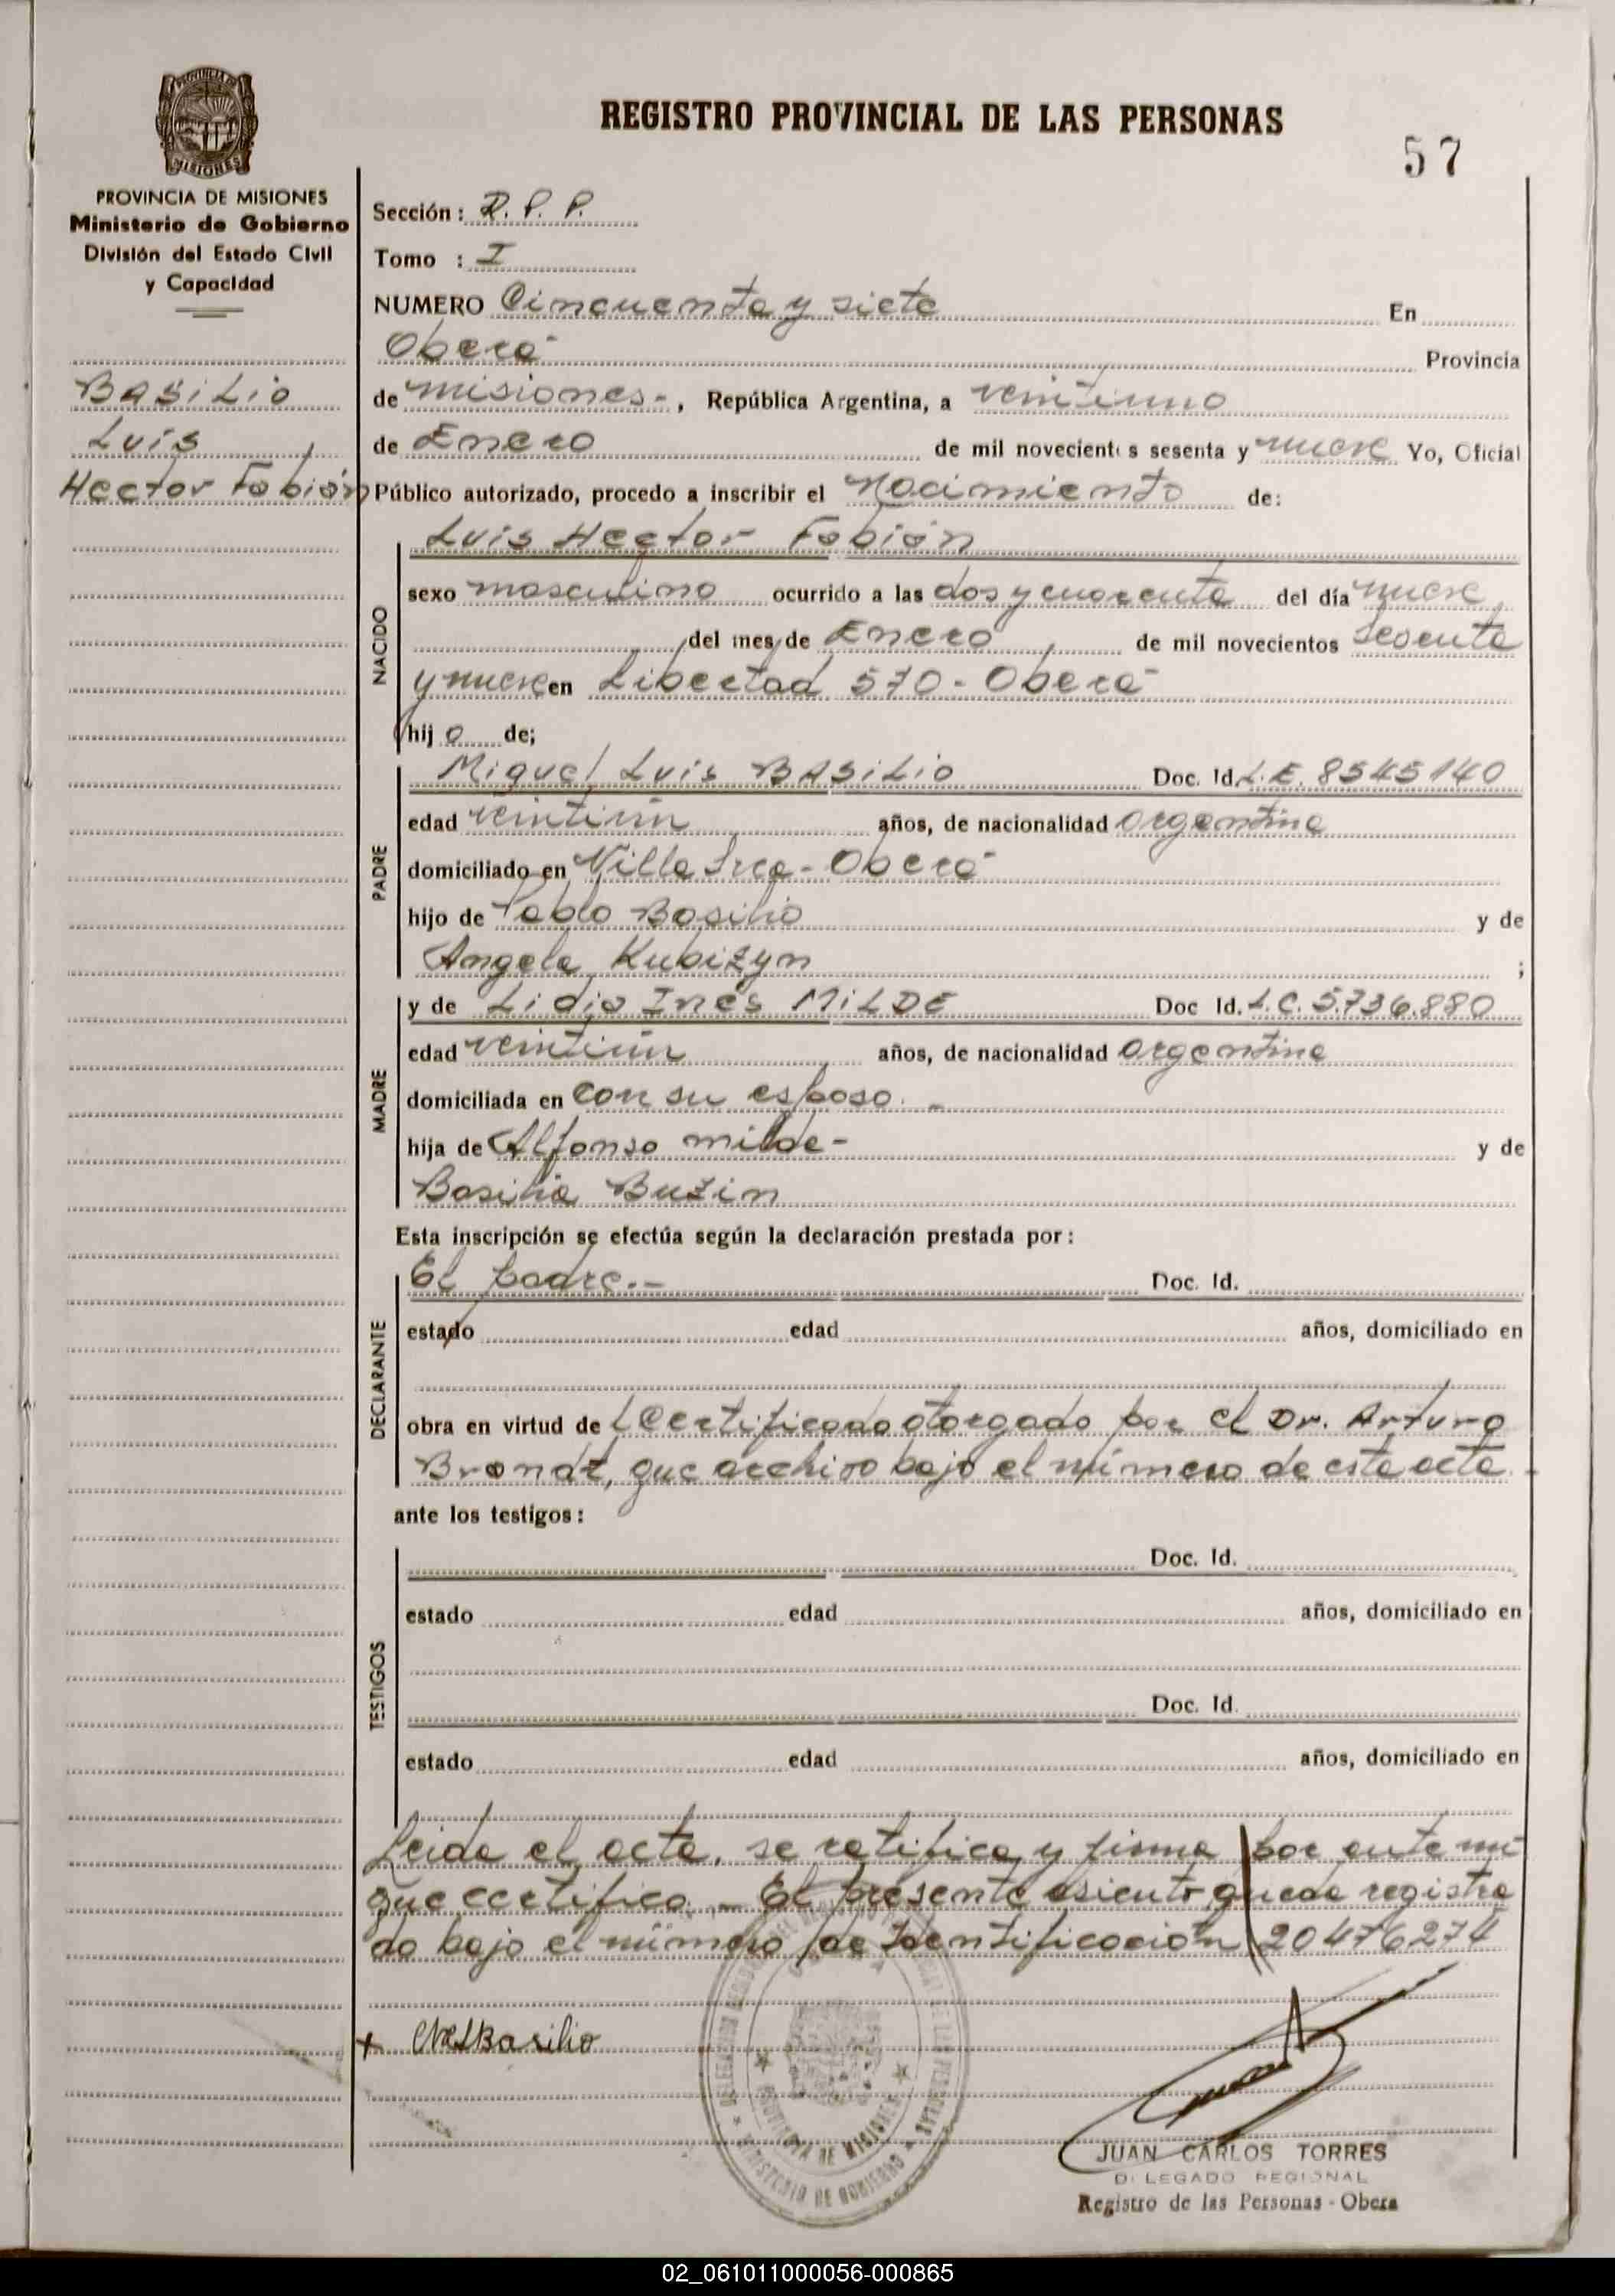 REGISTRO PROVINCIAL DE LAS PERSONAS
57
MISIONES
PROVINCIA DE MISIONES
Ministerio de Gobierno
División del Estado Civil
y Capacidad
BASILIO
Luis
Hector Fabián
Sección: R. P. P.
Tomo : I
NUMERO Cincuenta y siete En
Oberá Provincia
de Misiones-, República Argentina, a veintiuno
de Enero de mil novecientos sesenta y nueve Yo, Oficial
Público autorizado, procedo a inscribir el Nacimiento de:
NACIDO
Luis Hector Fabián
sexo masculino ocurrido a las dos y cuarenta del día nueve
del mes de Enero de mil novecientos sesenta
y nueve en Libertad 570 - Oberá
hijo de;
PADRE
Miguel Luis BASILIO Doc. Id. L.E. 8545140
edad veintiún años, de nacionalidad argentina
domiciliado en Villa - Oberá
hijo de Pablo Basilio y de
Angela Kubizyn ;
MADRE
y de Lidia Inés MILDE Doc Id. L.C. 5.736.880
edad veintiún años, de nacionalidad argentina
domiciliada en con su esposo. -
hija de Alfonso Milde- y de
Basilia Buzin
Esta inscripción se efectúa según la declaración prestada por:
DECLARANTE
El padre.- Doc. Id.
estado edad años, domiciliado en
obra en virtud de Certificado otorgado por el Dr. Arturo
Brondt, que archivo bajo el número de esta acta.
ante los testigos:
TESTIGOS
Doc. Id.
estado edad años, domiciliado en
Doc. Id.
estado edad años, domiciliado en
Leida el acta, se ratifica y firma por ante mí
que certifico - El presente asiento queda registra
do bajo el número de Identificación 20476274
Basilio
PROVINCIA DE MISIONES
MINISTERIO DE GOBIERNO
JUAN CARLOS TORRES
DELEGADO REGIONAL
Registro de las Personas - Obera
02_061011000056-000865